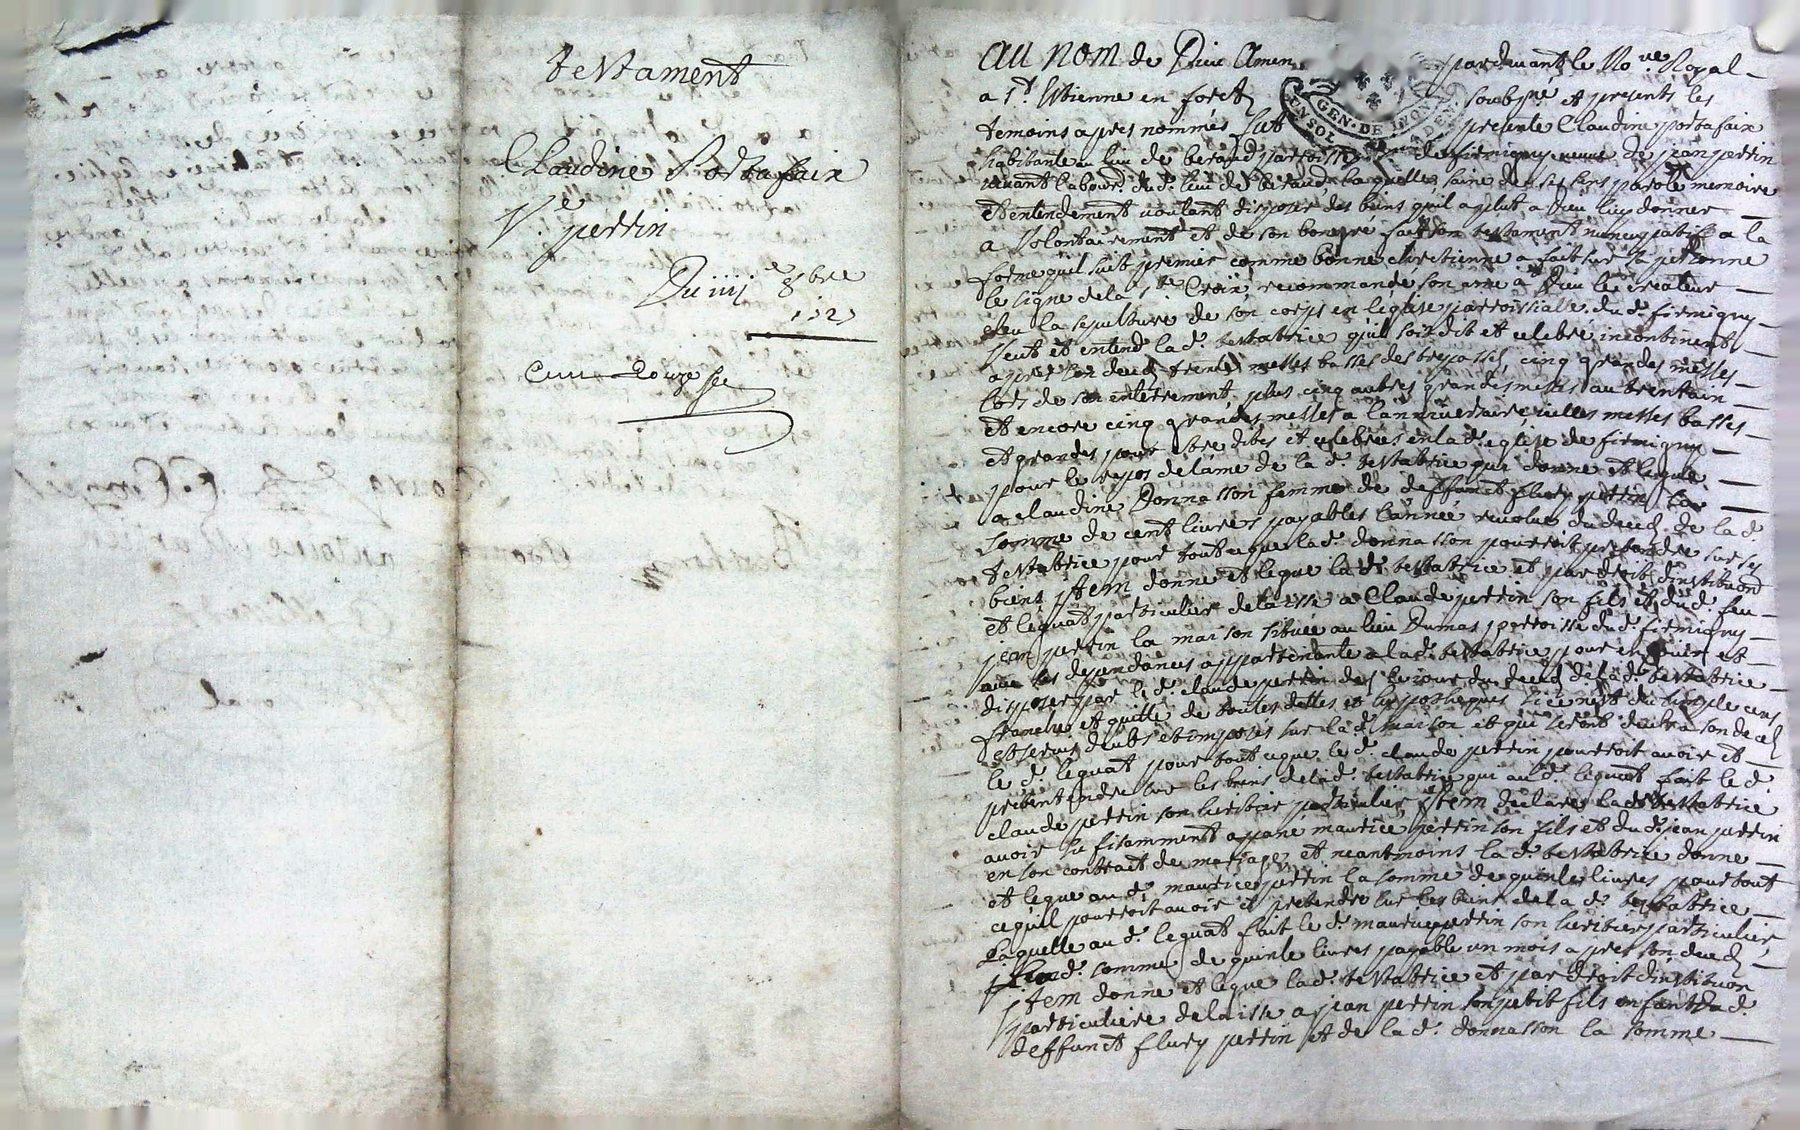 testament
Claudine Portafaix
Ve. perrin
Du iiiie 8bre
au nom de Dieu Amen pardevant le Nore Royal
a St. Etienne en forest soubsne et presents les
GEN. DE
temoins apres nommés fut presente Claudine portafaix
habitante au lieu de beraud parroisse de firmigny veuve de jean perrin
vivant labour. dud. lieu de beraud laquelle saine de ses sens parolle memoire
et entendement voulant disposer des biens quil a plut a Dieu luy donner
a volontairement et de son bon gré fait son testament nuncupatif a la
forme quil suit premier comme bonne chrestienne a fait sur sa personne
le signe de la ste Croix, recommandé son ame a Dieu le createur
eleu la sepulture de son corps en leglise parroissialle dud. firmigny
Veut et entend lad. testatrice quil soit dit et celebré incontinent
apres son deced trente messes basses des trepassés, cinq grandes messes
lors de son enterrement, plus cinq autres grandes messes au trentain
et encore cinq grandes messes a lanniversaire, icelles messes basses
et grandes pour estre dites et celebrées en lad. eglise de firmigny
pour le repos de lame de la d. testatrice qui donne et legue
a claudine Donnasson femme de deffunct fleury perrin la
somme de cent livres payables lannée revolue du deced de la d.
testatrice pour tout ce que la d. donnasson pourroit pretendre sur ses
biens, jtem donne et legue la d. testatrice et par droit dinstitution
et legat particulier delaisse a Claude perrin son fils et dud. feu
jean perrin la maison situee au lieu Dumas parroisse dud. firmigny
avec ses dependances appartenante a la d. testatrice pour en jouir et
disposer par le d. claude perrin des le jour du deced de la d. testatrice
franche et quitte de toutes dettes et hypotheques si ce nest du simple cens
et servis deubs et imposés sur la d. maison et qui seront deubs a son deced
le d. legat pour tout ce que le d. claude perrin pourroit avoir et
pretendre sur les biens de la d. testatrice qui au d. legat fait le d.
claude perrin son heritier particulier jtem declare lad. testatrice
avoir suffisamment appané maurice perrin son fils et du d. jean perrin
en son contract de mariage, et neantmoins la d. testatrice donne
et legue au d. maurice perrin la somme de quinze livres pour tout
ce quil pourroit avoir et pretendre sur les biens de la d. testatrice
Laquelle au d. legat fait le d. maurice perrin son heritier particulier
lad. somme de quinze livres payable un mois apres son deced
jtem donne et legue lad. testatrice et par droit dinstitution
particuliere delaisse a jean perrin son petit fils enfant d.
deffunct fleury perrin et de la d. donnasson la somme